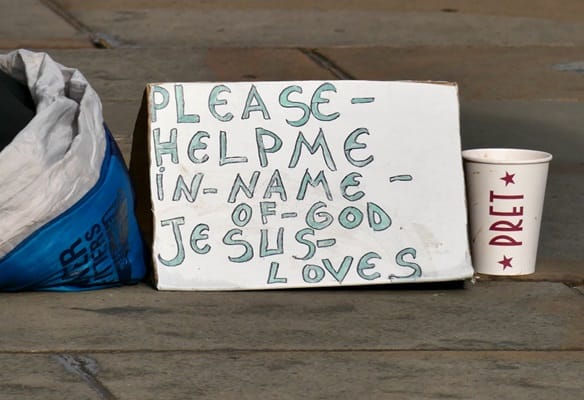 PLEASE-
HELP ME
iN-NAME-
OF-GOD
JESUS-
LOVES
★ PRET ★